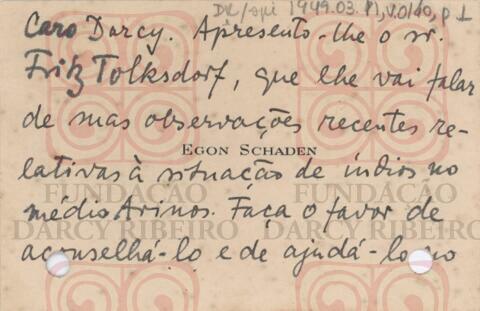 DR/spi 1949.03. PI, V.0/10, p 1
Caro Darcy. Apresento-lhe o sr.
Fritz Tolksdorf, que lhe vai falar
de suas observações recentes re-
EGON SCHADEN
lativas à situação de índios no
FUNDAÇÃO FUNDAÇÃO
médio Arinos. Faça o favor de
DARCY RIBEIRO DARCY RIBEIRO
aconselhá-lo e de ajudá-lo no